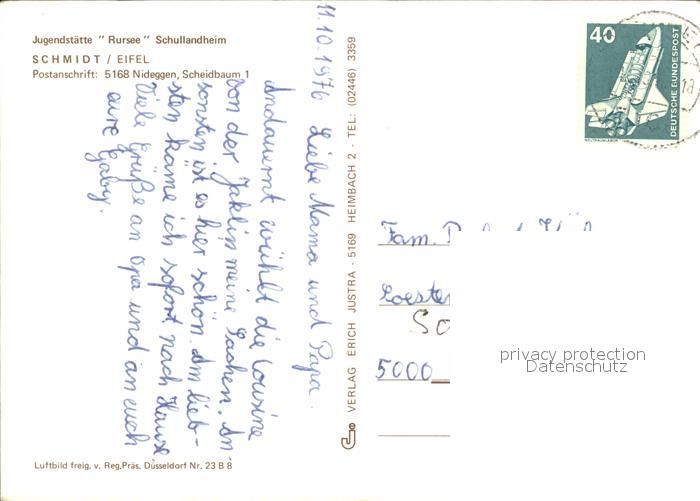 Jugendstätte " Rursee " Schullandheim
SCHMIDT / EIFEL
Postanschrift: 5168 Nideggen, Scheidbaum 1
11.10.1976
Liebe Mama und Papa.
Andauernt wühlt die Cousine
von der Jaklin meine Sachen. An-
sonsten ist es hier schön. Am lieb-
sten käme ich sofort nach Hause.
Viele Grüße an Opa und an euch
eure Gaby.
Luftbild freig. v. Reg.Präs. Düsseldorf Nr. 23 B 8
VERLAG ERICH JUSTRA · 5169 HEIMBACH 2 · TEL: (02446) 3359
40
DEUTSCHE BUNDESPOST
WELTRAUMLABOR
Fam.
5000
privacy protection
Datenschutz